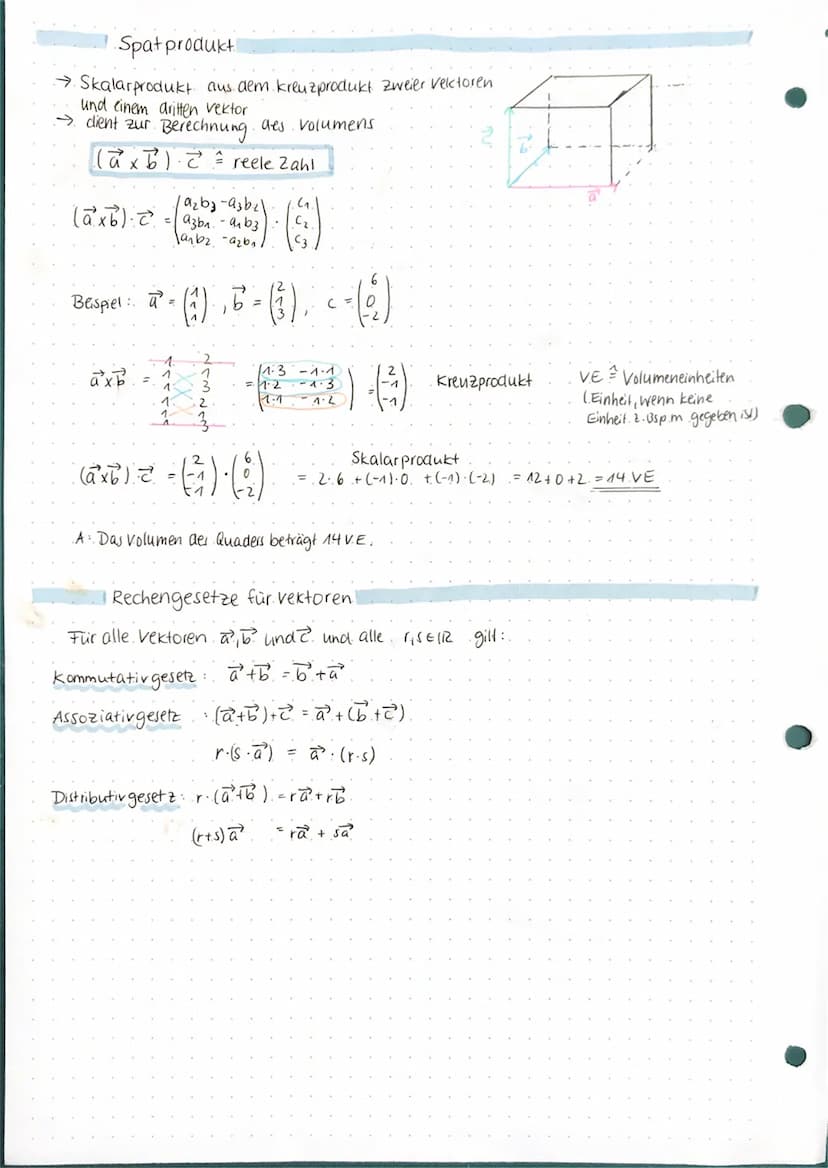 Spatprodukt
→ Skalarprodukt aus dem Kreuzprodukt zweier Vektoren
und einem dritten Vektor
→ dient zur Berechnung des Volumens
(a⃗ x b⃗) · c⃗ ≙ reele Zahl
c⃗ b⃗ a⃗
(a⃗ x b⃗) · c⃗ = (a₂b₃ - a₃b₂ / a₃b₁ - a₁b₃ / a₁b₂ - a₂b₁) · (c₁ / c₂ / c₃)
Beispiel: a⃗ = (1 / 1 / 1), b⃗ = (2 / 1 / 3), c = (6 / 0 / -2)
1 2
1 1
1 3
1 2
1 1
1 3
a⃗ x b⃗ = = (1·3 - 1·1 / 1·2 - 1·3 / 1·1 - 1·2) = (2 / -1 / -1) Kreuzprodukt
VE ≙ Volumeneinheiten
(Einheit, wenn keine
Einheit z.Bsp. m gegeben ist)
Skalarprodukt
(a⃗ x b⃗) · c⃗ = (2 / -1 / -1) · (6 / 0 / -2) = 2·6 + (-1)·0 + (-1)·(-2) = 12+0+2 = 14 VE
A: Das Volumen des Quaders beträgt 14 VE.
Rechengesetze für Vektoren
Für alle Vektoren a⃗, b⃗ und c⃗ und alle r,s ∈ ℝ gilt:
Kommutativgesetz: a⃗ + b⃗ = b⃗ + a⃗
Assoziativgesetz: (a⃗+b⃗)+c⃗ = a⃗+(b⃗+c⃗)
r·(s·a⃗) = a⃗·(r·s)
Distributivgesetz: r·(a⃗+b⃗) = ra⃗ + rb⃗
(r+s)a⃗ = ra⃗ + sa⃗